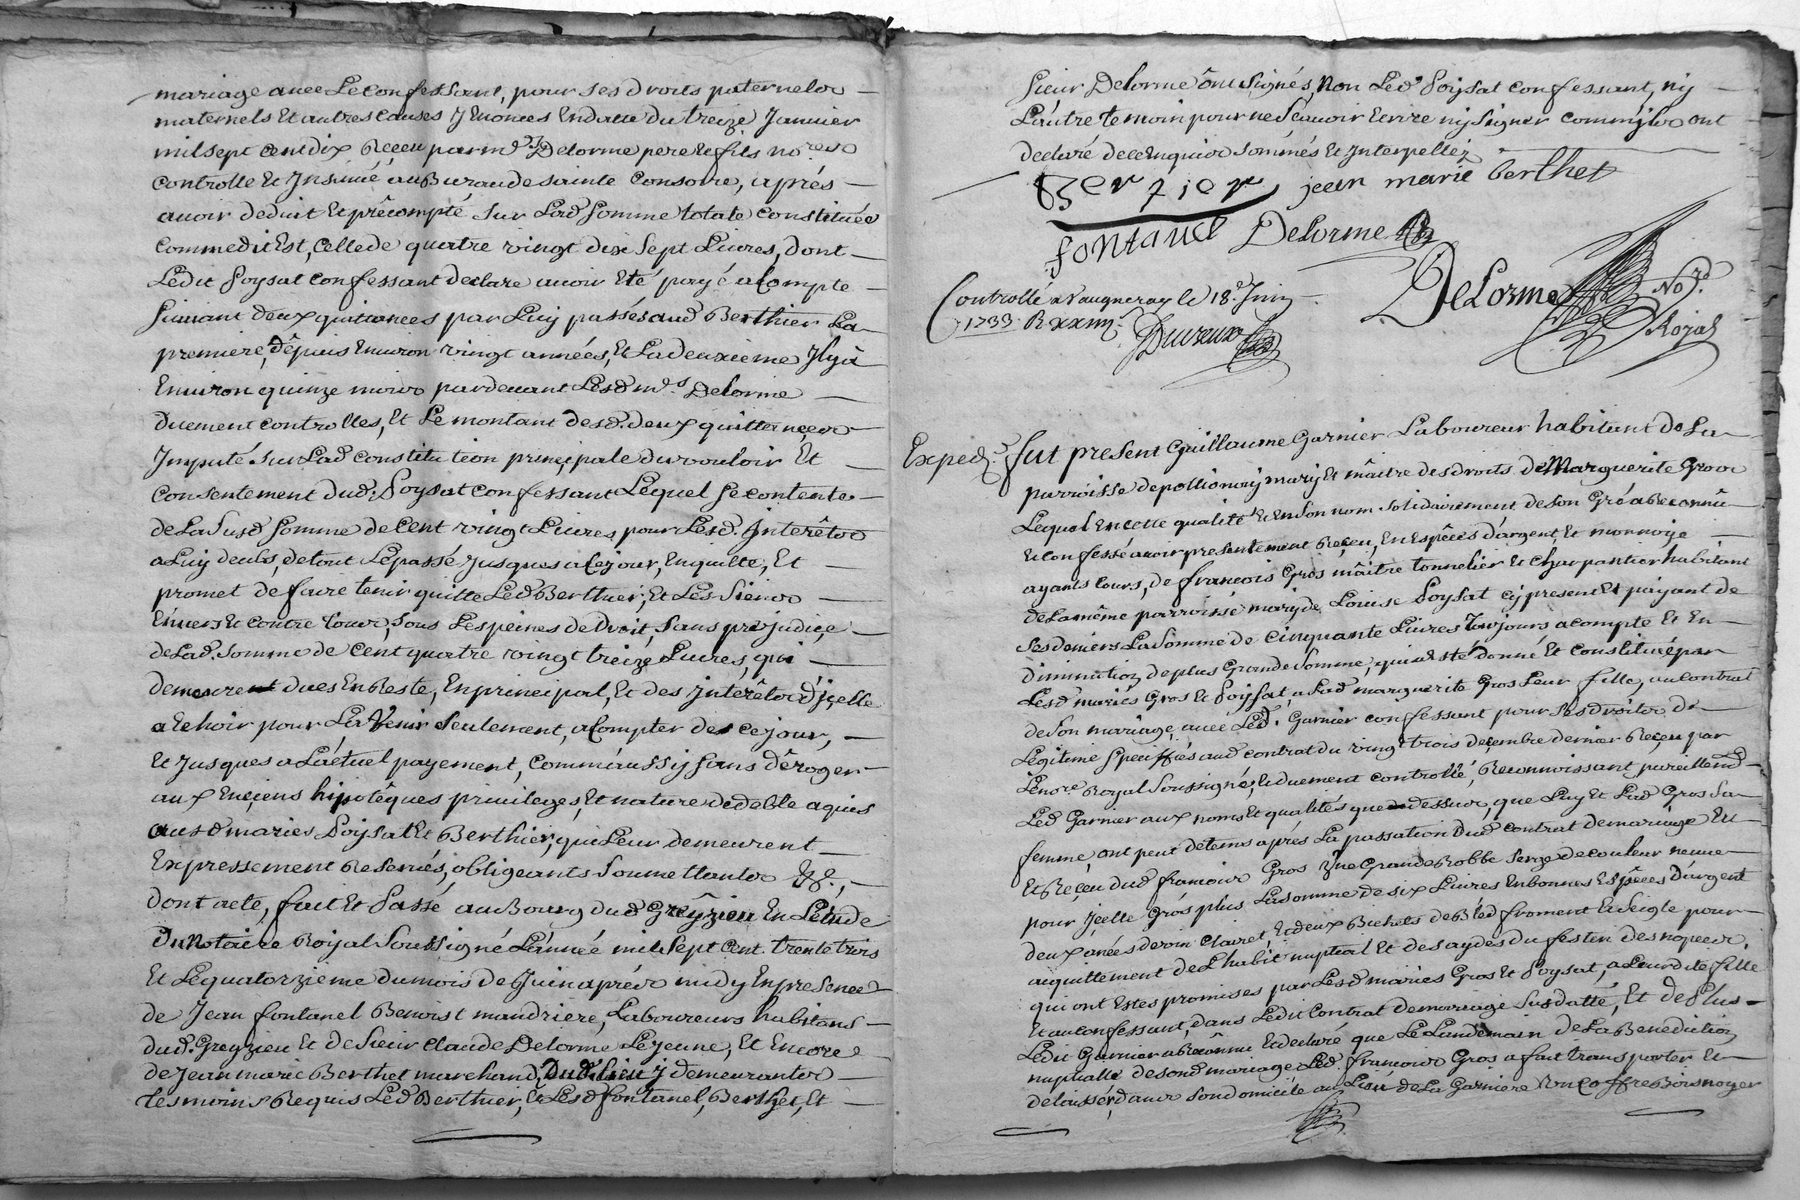 mariage avec Le Confessant, pour ses droits paternels
maternels Et autres Causes y Enoncés En datte du treize Janvier
mil sept cent dix Reçeu par mes Delorme pere Et fils nores
Controllé Et Insinué au Bureau de sainte Consorce, aprés
avoir deduit Et prêcompté sur Lad somme totale constituée
Comme dit Est, Celle de quatre vingt dix sept Livres, dont
Ledit Poysat confessant declare avoir Eté payé a Compte
suivant deux quittances par Luy passés aud Berthier La
premiere, dêpuis Environ vingt années, Et La deuxieme Il y a
Environ quinze mois pardevant Lesd mes Delorme
Duement controllés, Et Le montant desd. deux quittances
Imputé sur Lad constitution principale du vouloir Et
Consentement dud. Poysat confessant Lequel se contente
de La susd somme de Cent vingt Livres pour Lesd. Interêts
a Luy deubs, de tout Le passé jusques a Ce jour, En quitte, Et
promet de faire tenir quitte Led Berthier, Et Les Siens
Envers Et contre tous, sous Les peines de Droit, sans prejudice
de Lad. somme de Cent quatre vingt treize Livres, qui
demeurent dues En Reste, En principal, Et des Interêts d'jcelle
a Echoir pour L'avenir seulement, a Compter de ce jour,
Et jusques a L'actuel payement, Comm'aussy sans dêroger
aux Enciens hipotêques privileges, Et nature de debte aquis
ausd mariés Poysat Et Berthier, qui Leur demeurent
Expressement Reservés, obligeants soumettants &c.,
dont acte, fait Et Passé au Bourg dud Grêyzieu En L'etude
Du Notaire Royal soussigné L'année mil sept Cent trente trois
Et Le quatorzieme du mois de Juin aprés midy En presence
de Jean fontanel Benoist mandriere, Laboureurs habitans
dud. Greyzieu Et de sieur Claude Delorme Le jeune, Et Encore
de Jean marie Berthet marchand, Dud. Lieu y demeurants
tesmoins Requis Led Berthier, Et Lesd fontanel, Berthet, Et
sieur Delorme ônt signés, Non Led Poysat confessant, ny
L'autre temoin pour ne Sçavoir Ecrire ny signer comm'jls ont
declaré de ce Enquis sommés Et Interpellez
Berzier jean marie berthet
fontanel Delorme
Controllé a Vaugneray le 18e Juin
1733. R xxiiij s. Duvreux
DeLorme Nore.
Royal
Exped. fut present Guillaume Garnier Laboureur habitant de La
parroisse de pollionay mary Et mâitre des droits de Marguerite Gros
Lequel En cette qualité Et En son nom solidairement de son Gré a Reconnû
Et Confessé avoir presentement Reçeu, En Espêces d'argent, Et monnoye
ayants Cours, de francois Gros mâitre tonnelier Et charpantier habitant
de La même parroisse mary de Louise Poysat cy present Et payant de
ses deniers La somme de Cinquante Livres toujours a compte Et En
diminution de plus Grande somme, qui a Esté donné Et Constitué par
Lesd mariés Gros Et Poysat, a Lad marguerite Gros Leur fille, au Contrat
de son mariage avec Led. Garnier confessant pour ses droits de
Légitime speciffiés aud contrat du vingt trois decembre dernier Reçeu par
Le nore Royal soussigné, Et duement controllé, Reconnoissant pareillemt
Led Garnier aux noms Et qualités que dessus, que Luy Et Lad Gros sa
femme, ont peut de tems aprés La passation dud contrat de mariage Eu
Et Reçeu dud francois Gros Une Grande Robbe serge de couleur neuve
pour jcelle Gros plus La somme de six Livres En bonnes Espêces d'argent
deux anées de vin Clairet, Et deux Bichets de Bled froment Et seigle pour
acquittement de L'habit nuptial Et des aydes du festin des nopces,
qui ont Estes promises par Lesd mariés Gros Et Poysat, a Leurdite fille
Et au Confessant, dans Ledit Contrat de mariage susdatté, Et de Plus
Ledit Garnier a Reconnu Et declaré que Le Landemain de La Benediction
nuptialle de sond mariage Led. francois Gros a fait transporter Et
de laisser, dans son domicile au Lieu de La Garniere Un Coffre Bois noyer